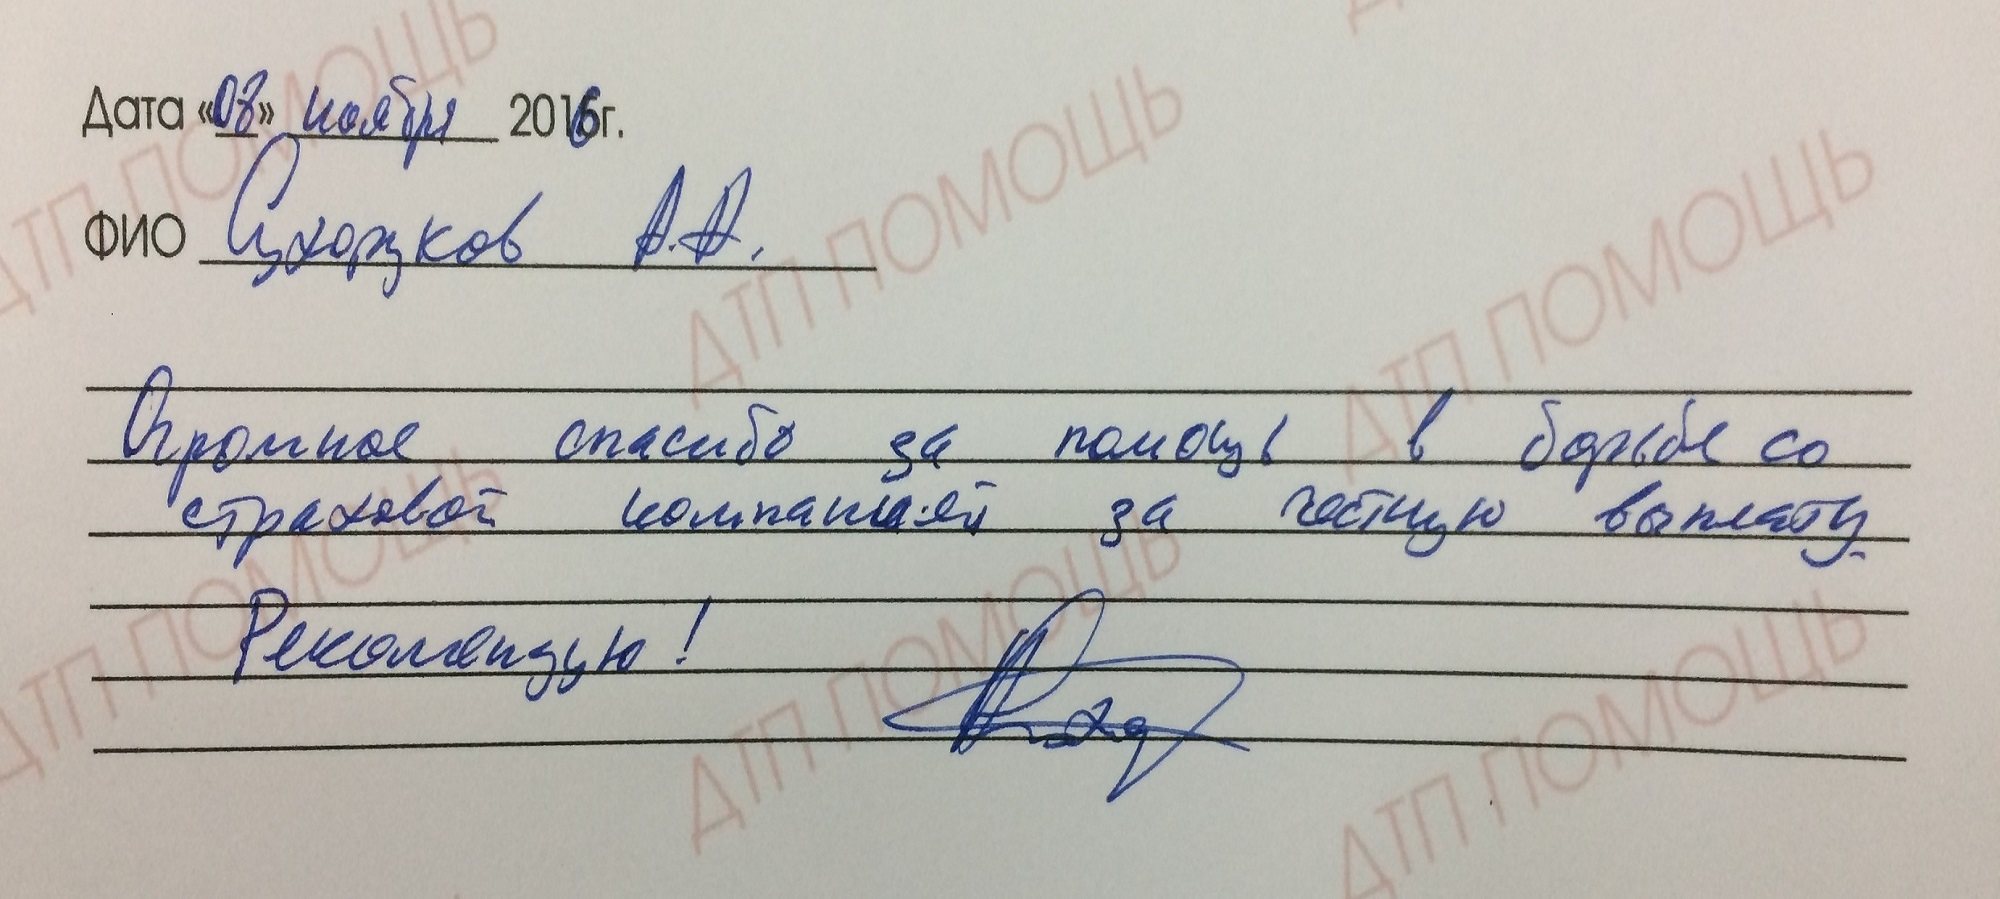 Дата «08» ноября 2016г.
ФИО Сухоруков А.А.
Огромное спасибо за помощь в борьбе со
страховой компанией за честную выплату.
Рекомендую!
ДТП ПОМОЩЬ
ДТП ПОМОЩЬ
ДТП ПОМОЩЬ
ДТП ПОМОЩЬ
ДТП ПОМОЩЬ
ДТП ПОМОЩЬ